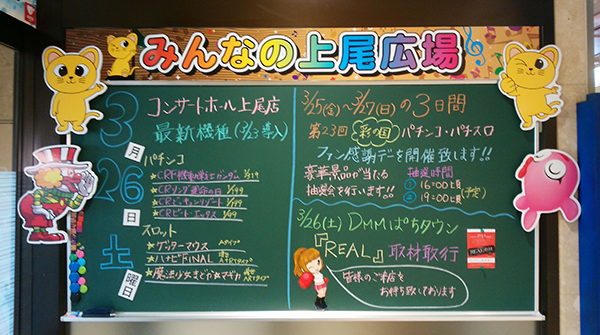 みんなの上尾広場
3月
26日
土曜日
コンサートホール上尾店
最新機種(3/23導入)
パチンコ
★CRF.機動戦士ガンダム 1/319
★CRリング 運命の日 1/399
1/99
★CRビートエックス 1/99
スロット
★ゲッターマウス Aタイプ
★ハナビFINAL
★魔法少女まどかマギカ
3/25(金)~3/27(日)の3日間
第23回 彩の国 パチンコ・パチスロ
ファン感謝デーを開催致します!!
豪華景品が当たる
抽選会を行います!!
抽選時間
① 16:00頃
② 19:00頃
(予定)
3/26(土) DMMぱちタウン
『REAL』 取材敢行
皆様のご来店を
お待ち致しております